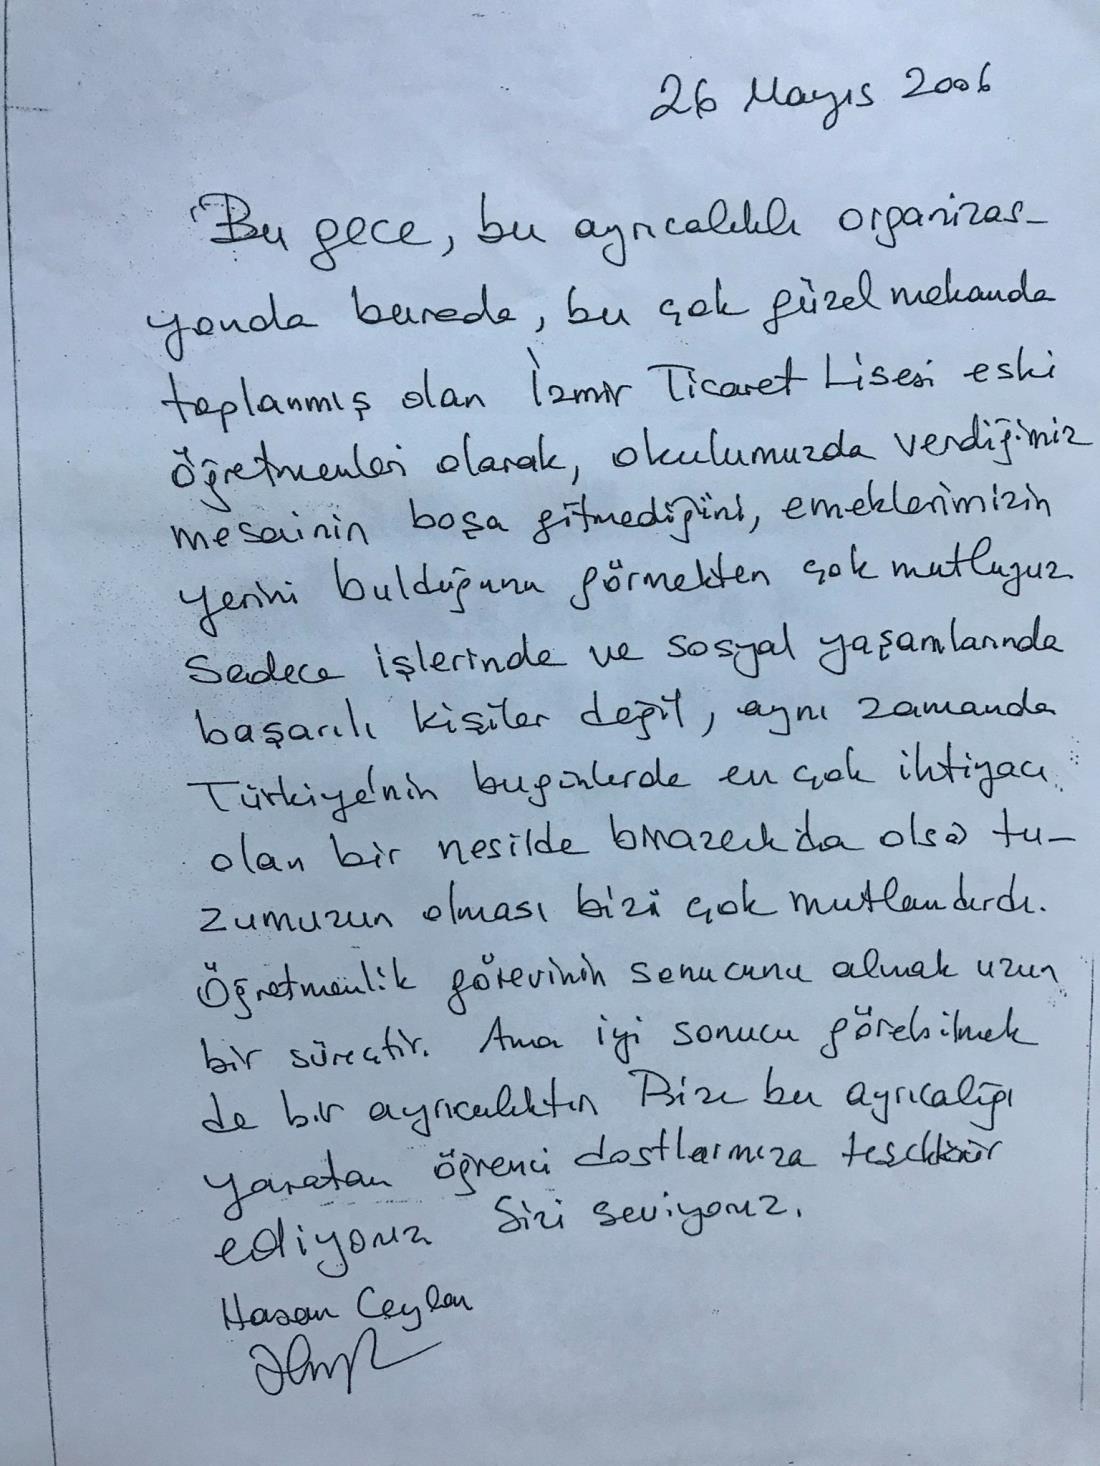 26 Mayıs 2006
Bu gece, bu ayrıcalıklı organizas-
yonda burada, bu çok güzel mekanda
toplanmış olan İzmir Ticaret Lisesi eski
öğretmenleri olarak, okulumuzda verdiğimiz
mesainin boşa gitmediğini, emeklerimizin
yerini bulduğunu görmekten çok mutluyuz.
Sadece işlerinde ve sosyal yaşamlarında
başarılı kişiler değil, aynı zamanda
Türkiye'nin bugünlerde en çok ihtiyacı
olan bir nesilde birazcık da olsa tu-
zumuzun olması bizi çok mutlandırdı.
Öğretmenlik görevinin sonucunu almak uzun
bir süreçtir. Ama iyi sonucu görebilmek
de bir ayrıcalıktır. Bize bu ayrıcalığı
yaratan öğrenci dostlarımıza teşekkür
ediyoruz Sizi seviyoruz.
Hasan Ceylan